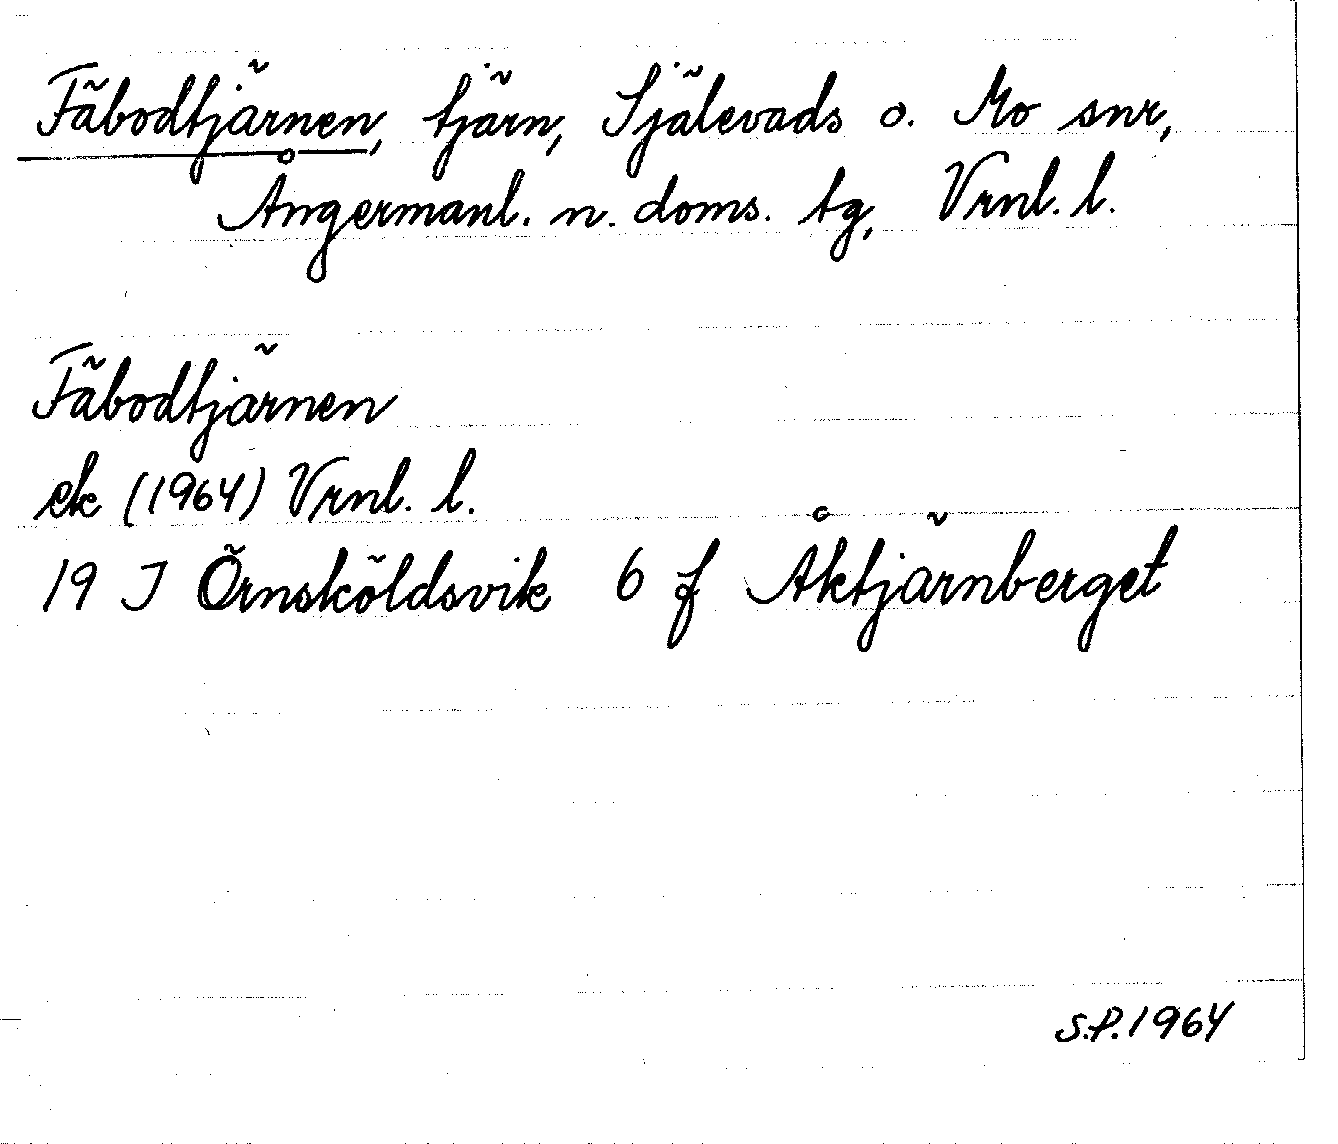 Fäbodtjärnen, tjärn, Själevads o. Mo snr,
Ångermanl. n. doms. tg, Vrnl. l.
Fäbodtjärnen
ek (1964) Vrnl. l.
19 J Örnsköldsvik 6 f Åktjärnberget
S.P. 1964